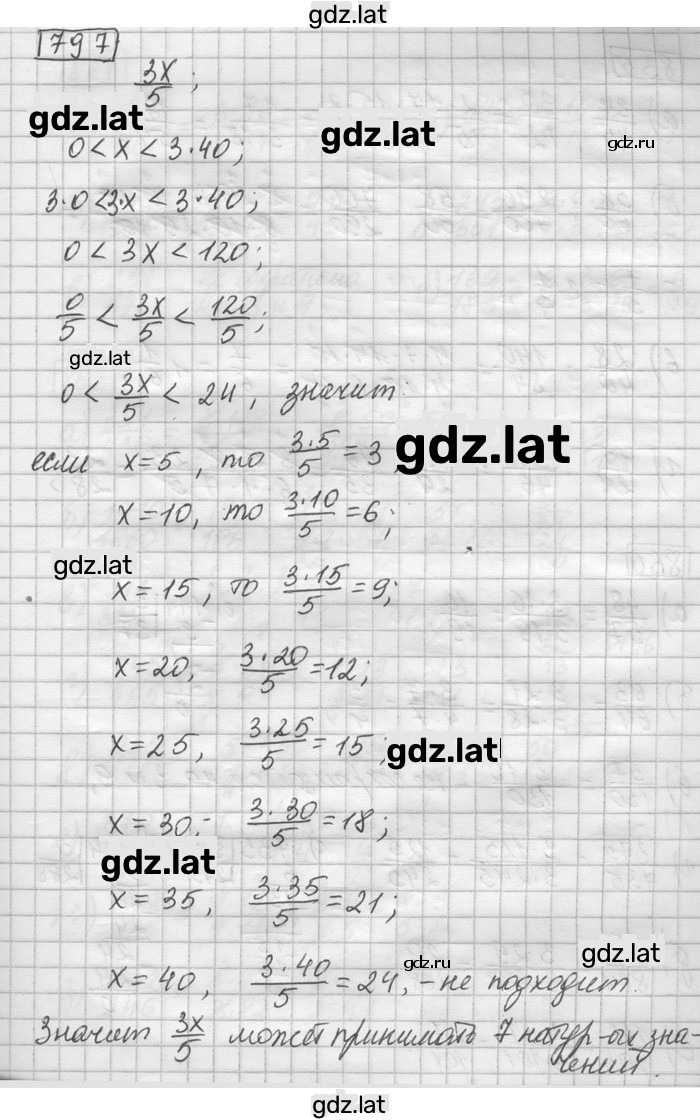 gdz.lat
797
3x/5 ;
gdz.lat gdz.lat gdz.ru
0 < x < 3·40;
3·0<3·x < 3·40;
0 < 3x < 120;
0/5 < 3x/5 < 120/5;
gdz.lat
0 < 3x/5 < 24, значит:
если x=5, то 3·5/5 = 3, gdz.lat
x=10, то 3·10/5 = 6;
gdz.lat
x=15, то 3·15/5 = 9;
x=20, 3·20/5 = 12;
x=25, 3·25/5 = 15; gdz.lat
x=30, 3·30/5 = 18;
gdz.lat
x=35, 3·35/5 = 21;
gdz.ru gdz.lat
x=40, 3·40/5 = 24, - не подходит.
Значит 3x/5 может принимать 7 натур-ых зна-
чений.
gdz.lat